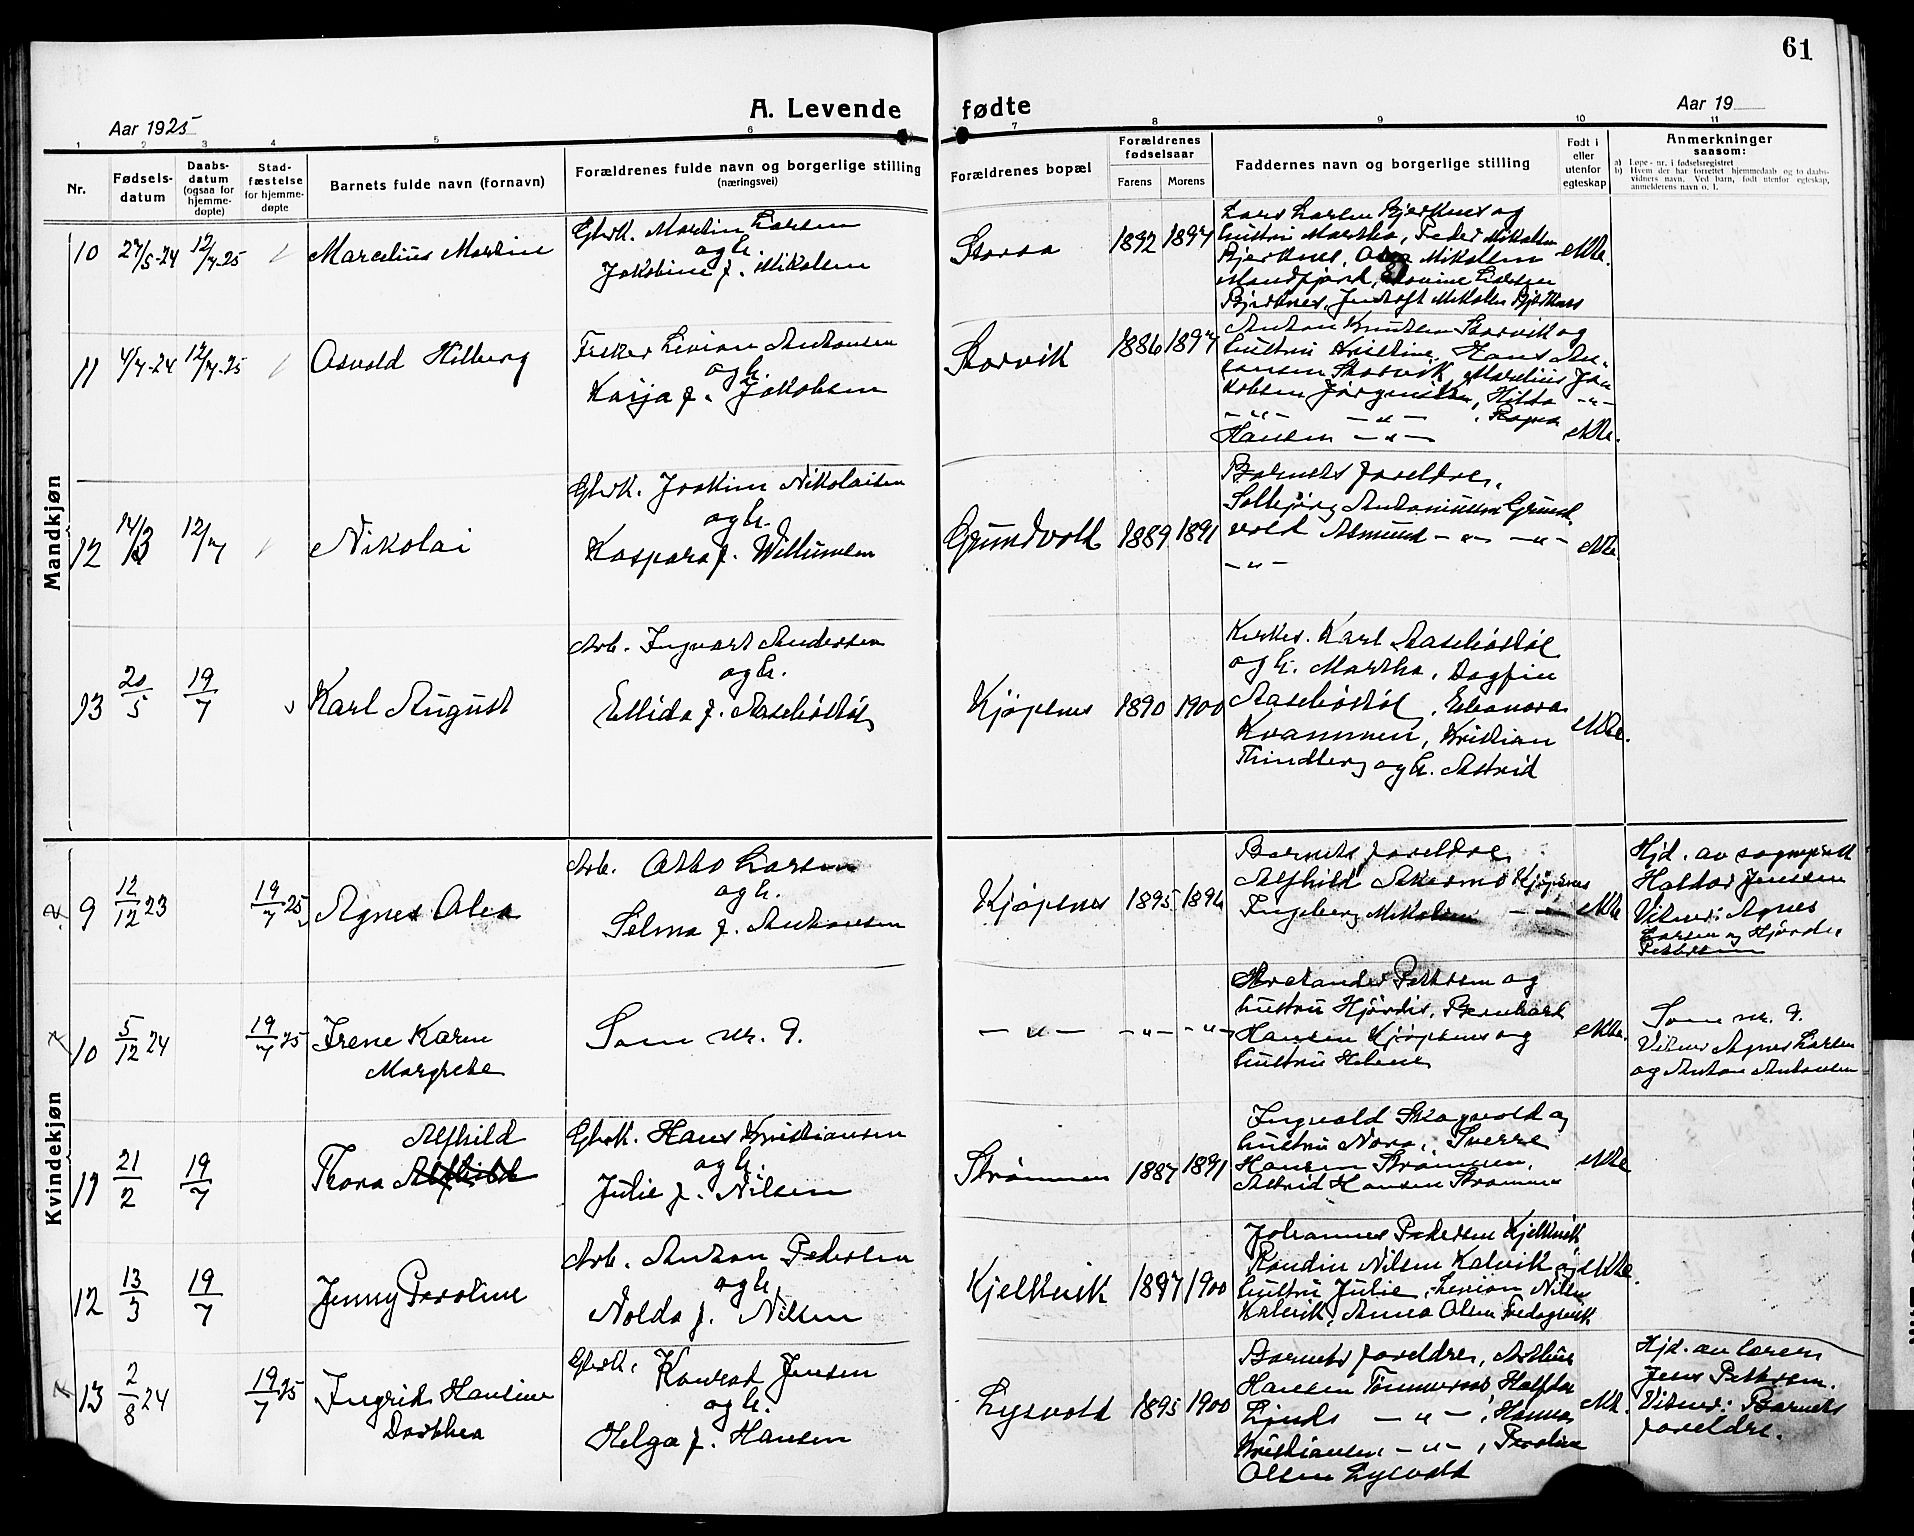 61
A. Levende fødte
Aar 1925
Aar 19
1 2 3 4 5 6 7 8 9 10 11
Nr.
Fødsels-
datum
Daabs-
datum
(ogsaa for
hjemme-
døpte)
Stad-
fæstelse
for hjemme-
døpte
Barnets fulde navn (fornavn)
Forældrenes fulde navn og borgerlige stilling
(næringsvei)
Forældrenes bopæl
Forældrenes
fødselsaar
Farens
Morens
Faddernes navn og borgerlige stilling
Født i
eller
utenfor
egteskap
Anmerkninger
saasom:
a) Løpe-nr. i fødselsregistret
b) Hvem der har forrettet hjemmedaab og to daabs-
vidners navn. Ved barn, født utenfor egteskap,
anmelderens navn o. l.
Mandkjøn
10
27/5-24
12/7-25
Marcelius Martin
Gbrk. Martin Larsen
og h.
Jakobine f. Mikalsen
1892
1897
Lars Larsen Bjerknes og
hustru Martha, Peder Mikalsen
Bjerknes, Mikalsen
Larsen
Bjerknes, Mikalsen Bjerknes
ekte.
11
4/7-24
12/7-25
Osvald Hilberg
Fisker Anthonsen
og h.
Kaija f. Jakobsen
Storvik
1886
1897
Anton Knutsen Storvik og
hustru Kristine, Hans An-
tonsen Storvik, Marelius Ja-
kobsen Hilda -"-
-"- -"- , Ragna
Hansen -"-
ekte.
12
14/3
12/7
Nikolai
Gbrk. Joakim Nikolaisen
og h.
Kaspara f. Willumsen
Grundvold
1889
1891
Barnets foreldre,
Solbjørg Antoniussen Grund-
vold Asmund -"- -"-
-"-
ekte.
13
20/5
19/7
Karl August
Arb. Ingvart Andersen
og h.
Ellida f. Aasebøstøl
Kjøpsnes
1890
1900
Karl Aasebøstøl
og h. Martha, Dagfin
Aasebøstøl, Eleanora
Kvammen, Kristian
Thindberg og h. Astrid
ekte.
Kvindekjøn
9
12/12 23
19/7 25
Agnes Alea
Arb. Otto Larsen
og h.
Selma f. Anthonsen
Kjøpsnes
1895
1896
Barnets foreldre
Alfhild Akermo Kjøpsnes
Ingeborg Mikalsen -"-
ekte
Hjd. av sogneprest
Haldor Jenssen
Vitner: Agnes
Larsen og Hjørdis
Pettersen
10
5/12 24
19/7 25
Irene Karin
Margrete
Som nr. 9.
-"-
-"-
-"-
Pettersen og
hustru Hjørdis, Bernhart
Hansen Kjøpsnes og
hustru Helene
ekte.
Som nr. 9.
Vitner Agnes Larsen
og Anton Antonsen
11
21/2
19/7
Alfhild
Thora Alfhild
Gbrk. Hans Kristiansen
og h.
Julie f. Nilsen
Strømmen
1887
1891
Ingvald Skogvold og
hustru Nora, Sverre
Hansen Strømmen,
Astrid Hansen Strømmen
ekte
12
13/3
19/7
Jenny Paroline
Arb. Anton Pedersen
og h.
Nolda f. Nilsen
Kjelkvik
1897
1900
Johannes Pedersen Kjelkvik
Rondin Nilsen Kalvik og
hustru Julie, Nilsen
Kalvik, Anna Olsen
ekte.
13
2/8 24
19/7 25
Ingrid Hansine
Dorthea
Gbrk. Konrad Jensen
og h.
Helga f. Hansen
Lysvold
1895
1900
Barnets foreldre, Arthur
Hansen Halfdan
-"- , Hanna
Kristiansen -"- , Paroline
Olsen Lysvold
ekt.
Hjd. av lærer
Jens Pettersen.
Vitner: Barnets
foreldre.